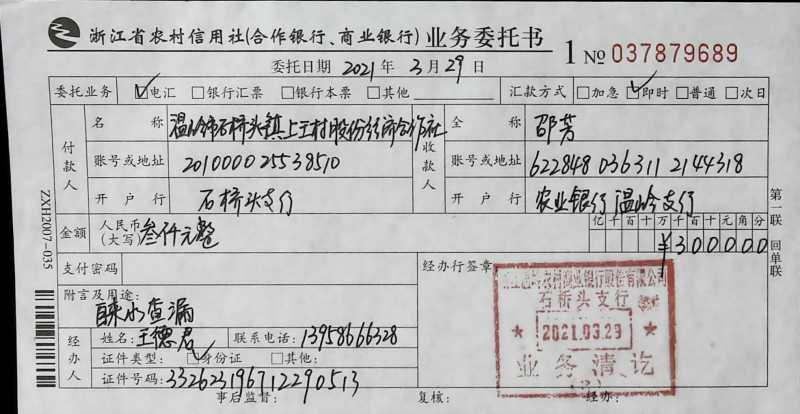 浙江省农村信用社(合作银行、商业银行) 业务委托书 1 № 037879689
委托日期 2021年 3月29日
委托业务 ☑电汇 □银行汇票 □银行本票 □其他 汇款方式 □加急 ☑即时 □普通 □次日
付款人 名称 温岭市石桥头镇上王村股份经济合作社 收款人 全称 邵芳
账号或地址 201000025538510 账号或地址 622848 036311 2144318
开户行 石桥头支行 开户行 农业银行温岭支行
金额 人民币(大写) 叁仟元整 亿千百十万千百十元角分
¥300000
支付密码 经办行签章
附言及用途:
自来水查漏
经办人 姓名: 王德君 联系电话: 13958666328
证件类型: ☑身份证 □其他:
证件号码: 332623196712290513
事后监督: 复核: 经办:
浙江温岭农村商业银行股份有限公司
石桥头支行
2021.03.29
业务清讫
ZXH2007-035
第一联 回单联